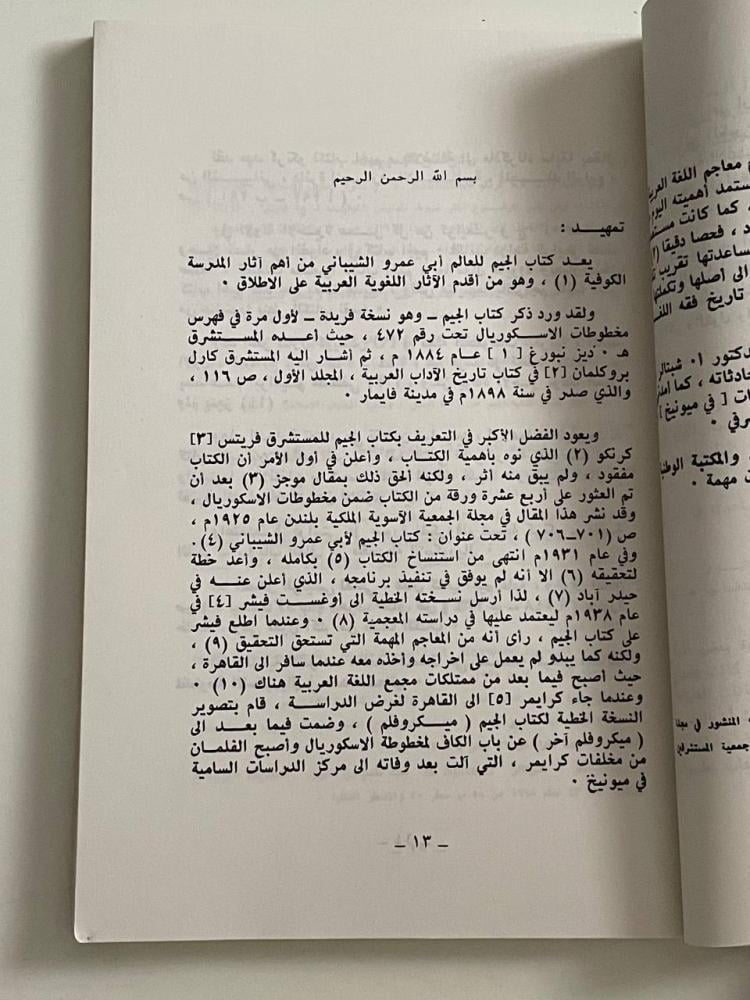 بسم الله الرحمن الرحيم
تمهيـــد :
يعــد كتاب الجيم للعالم أبي عمرو الشيباني من أهم آثار المدرسة
الكوفية (١) ، وهو من أقدم الآثار اللغوية العربية على الاطلاق ٠
ولقد ورد ذكر كتاب الجيم ــ وهو نسخة فريدة ــ لأول مرة في فهرس
مخطوطات الاسـكوريال تحت رقم ٤٧٢ ، حيث أعـده المسـتشرق
هـ ٠ ديز نبورغ [ ١ ] عــام ١٨٨٤ م ، ثم أشار اليه المستشرق كارل
بروكلمان [٢] في كتاب تاريخ الآداب العربية ، المجلد الأول ، ص ١١٦ ،
والذي صدر في سنة ١٨٩٨م في مدينة فايمار ٠
ويعود الفضل الأكبر في التعريف بكتاب الجيم للمستشرق فريتس [٣]
كرنكو (٢) الذي نوه بأهمية الكتـاب ، وأعلن في أول الأمر أن الكتاب
مفقود ، ولم يبق منه أثر ، ولكنه ألحق ذلك بمقال موجز (٣) بعد أن
تم العثور على أربع عشرة ورقة من الكتاب ضمن مخطوطات الاسكوريال ،
وقد نشر هذا المقال في مجلة الجمعية الآسوية الملكية بلندن عام ١٩٢٥م ،
ص (٧٠١–٧٠٦) ، تحت عنوان : كتاب الجيم لأبي عمرو الشيباني (٤) .
وفي عام ١٩٣١م انتهى من استنساخ الكتاب (٥) بكامله ، وأعد خطة
لتحقيقه (٦) الا أنه لم يوفق في تنفيذ برنامجه ، الذي أعلن عنـــه في
حيدر آباد (٧) ، لذا أرسل نسـخته الخطية الى أوغســت فيشر [٤] في
عام ١٩٣٨م ليعتمد عليها في دراسته المعجمية (٨) ٠ وعندما اطلع فيشر
على كتاب الجيم ، رأى أنه من المعاجم المهمة التي تستحق التحقيق (٩) ،
ولكنه كما يبدو لم يعمل على اخراجه وأخذه معه عندما سافر الى القاهرة ،
حيث أصبح فيما بعد من ممتلكات مجمع اللغة العربية هناك (١٠) ٠
وعندما جاء كرايمر [٥] الى القاهرة لغرض الدراسـة ، قام بتصوير
النسخة الخطية لكتاب الجيم ( ميـكروفلم ) ، وضمت فيما بعـد الى
( ميكروفلم آخر ) عن باب الكاف لمخطوطة الاسكوريال وأصبح الفلمـان
من مخلفات كرايمر ، التي آلت بعد وفاته الى مركز الدراسات السامية
في ميونيخ ٠
ــ ١٣ ــ
معاجم اللغة
ستمد أهميته اليوم
، كما كانت
د ، فحصا دقيقا
ساعدتها تقريب
الى أصلها
تاريخ فقه
دكتور ا٠
حادثاته ، كما
ات [ في ميونيخ ]
رقي ٠
والمكتبة
ت مهمة ٠
المنشور في مجلة
جمعية